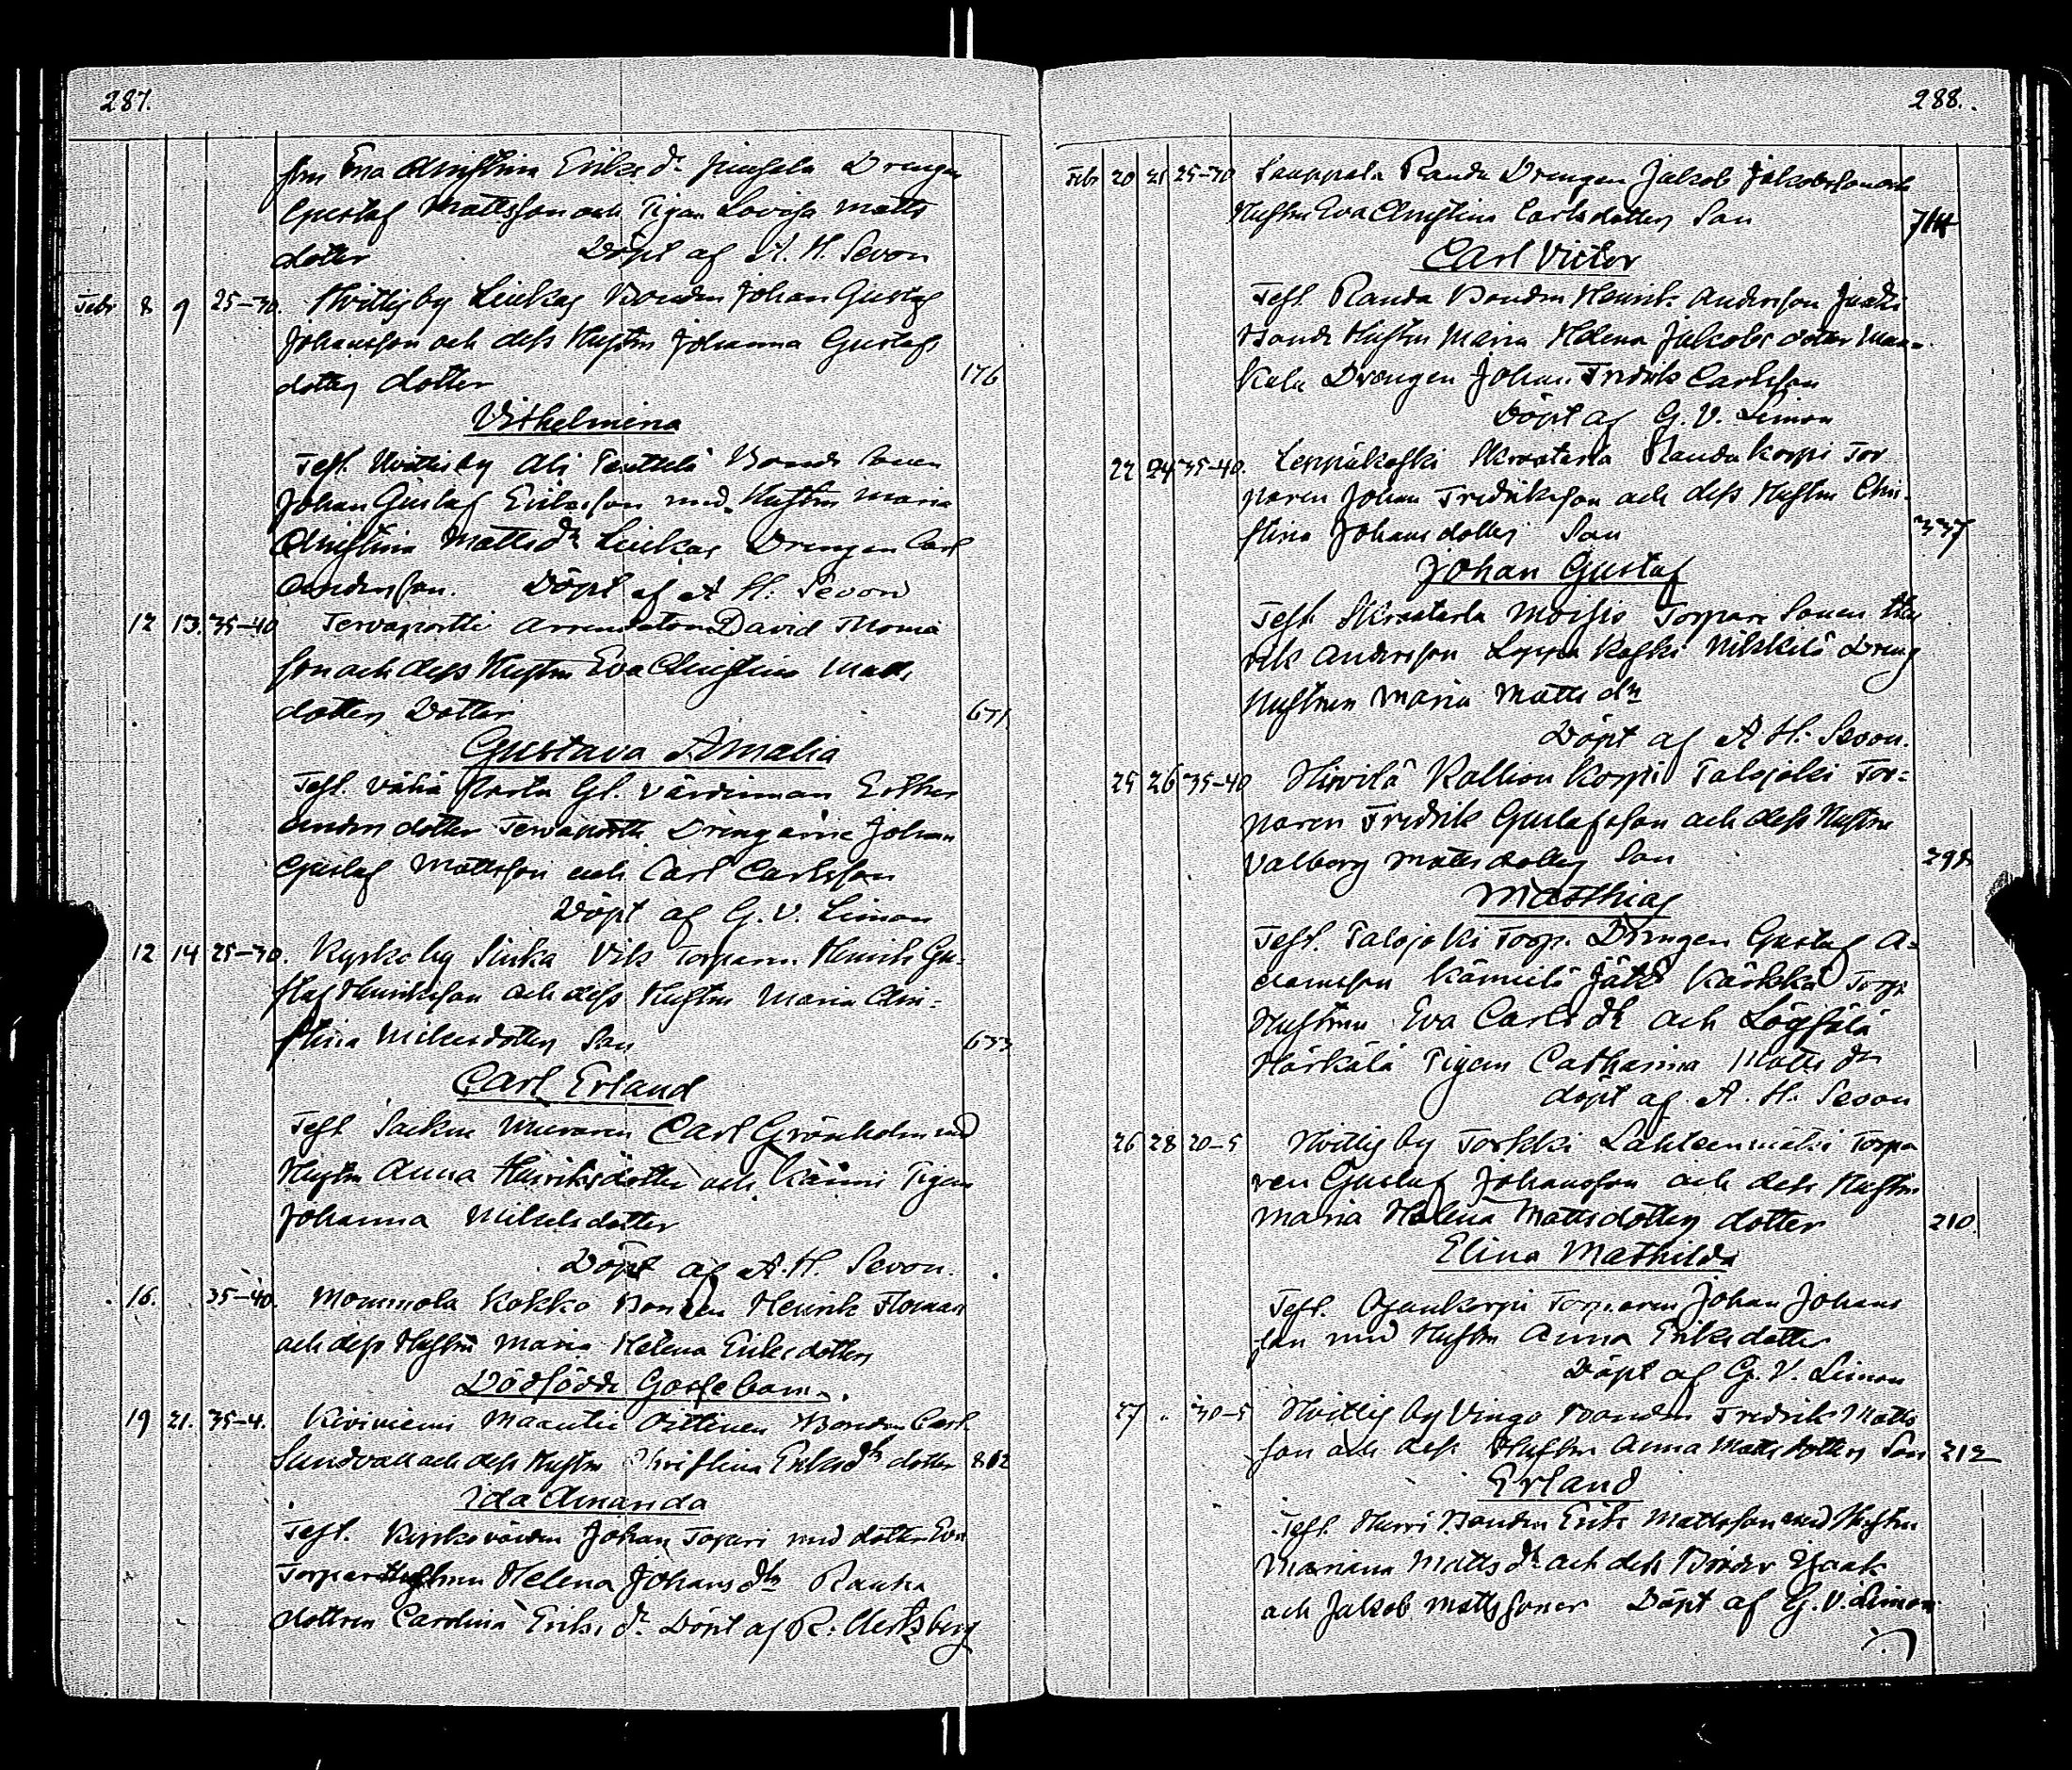 287.
Eva Christina Eriksdr Drengen
Gustaf Mattsson och Pigan Lovisa Matts
dotter Döpt af A. H. Sevon
Febr 8 9 25-30. Hvittisby Leikas Bonden Johan Gustaf
Johansson och dess Hustru Johanna Gustafs
dotters dotter 176
Vilhelmina
Test. Hvittisby Ali Penttilä Bonde Sonen
Johan Gustaf Eriksson med Hustru Maria
Christina Mattsdr Leikas Drengen Carl
Andersson. Döpt af A H. Sevon
12 13. 35-40 Tervaportti Arrendatorn David Thoma
son och dess Hustru Eva Christina Matts
dotters Dotter 651
Gustava Amalia
Test. Gl. värdinnan Esther
Anders dotter Tervaportti Drengarne Johan
Gustaf Mattsson och Carl Carlsson
Döpt af G. V. Limon
12 14 25-30. Kyrkoby Vik Torparen Henrik Gu-
staf Henriksson och dess Hustru Maria Chri-
stina Mikelsdotters Son 653
Carl Erland
Test Muraren Carl Grönholm med
Hustru Anna Henriksdotter och Pigan
Johanna Mikelsdotter
Döpt af A. H. Sevon.
16. 35-40. Mommola Kokko Bonden Henrik Floman
och dess Hustru Maria Helena Eriksdotters
Dödfödde Gossebarn.
19 21. 35-4. Kiviniemi Maantie Oittinen Bonden Carl
Sundvall och dess Hustru Christina Eriksdrs dotter 862
Ida Amanda
Test. Kyrkovärden Johan Topari med dotter Eva
Torpar Hustrun Helena Johansdr
dottren Carolina Eriksdr Döpt af R. Hertzberg
288.
Febr 20 21 25-30 Sauppala Randa Drengen Jakob Jakobsson och
Hustru Eva Christina Carlsdotters Son 714
Carl Victor
Test. Randa Bonden Henrik Andersson
Bonde Hustru Maria Helena Jakobs dotter
Drengen Johan Fredrik Carlsson
Döpt af G. V. Limon
22 24 35-40. Leppäkoski Skraatarla Randakorpi Tor
paren Johan Fredriksson och dess Hustru Chri-
stina Johansdotters Son 337
Johan Gustaf
Test. Skraatarla Moisio Torpare Sonen Hen
rik Andersson Leppäkoski Nikkilä Dreng
Hustrun Maria Mattsdr
Döpt af A H. Sevon.
25 26 35-40 Hirvilä Kallion Korpi Talojoki Tor-
paren Fredrik Gustafsson och dess Hustru
Valborg Mattsdotters Son 298
Matthias
Test. Talojoki Torp. Drengen Gustaf A-
damsson Jätt Kärkkä Torp.
Hustrun Eva Carlsdr och
Härkälä Pigan Catharina Mattsdr
döpt af A. H. Sevon
26 28 20-5 Hvittisby Torkki Lähteenmäki Torpa
ren Gustaf Johansson och dess Hustru
Maria Helena Mattsdotters dotter 210
Elina Mathilda
Test. Ojankorpi Torparen Johan Johans
son med Hustru Anna Eriksdotter
Döpt af G. V. Limon
27 " 30-5 Hvittisby Vinga Bonden Fredrik Matts
son och dess Hustru Anna Mattsdotters Son 212
Erland
Test. Harri Bonden Erik Mattsson med Hustru
Mariana Mattsdr och dess Bröder Isaak
och Jakob Mattssöner Döpt af G. V. Limon